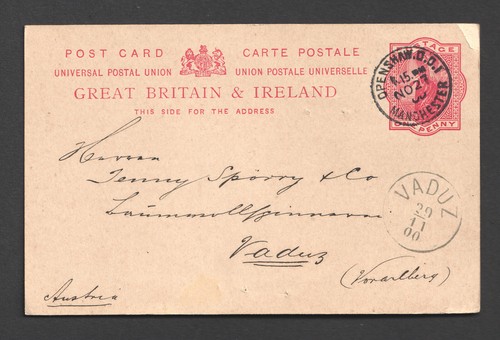 POST CARD CARTE POSTALE
UNIVERSAL POSTAL UNION UNION POSTALE UNIVERSELLE
GREAT BRITAIN & IRELAND
THIS SIDE FOR THE ADDRESS
POSTAGE
ONE PENNY
OPENSHAW.D.O.
NO 27
MANCHESTER
Herren
Jenny Spörry & Co
Baumwollspinnerei
Vaduz
(Vorarlberg)
Austria
VADUZ
29
11
00